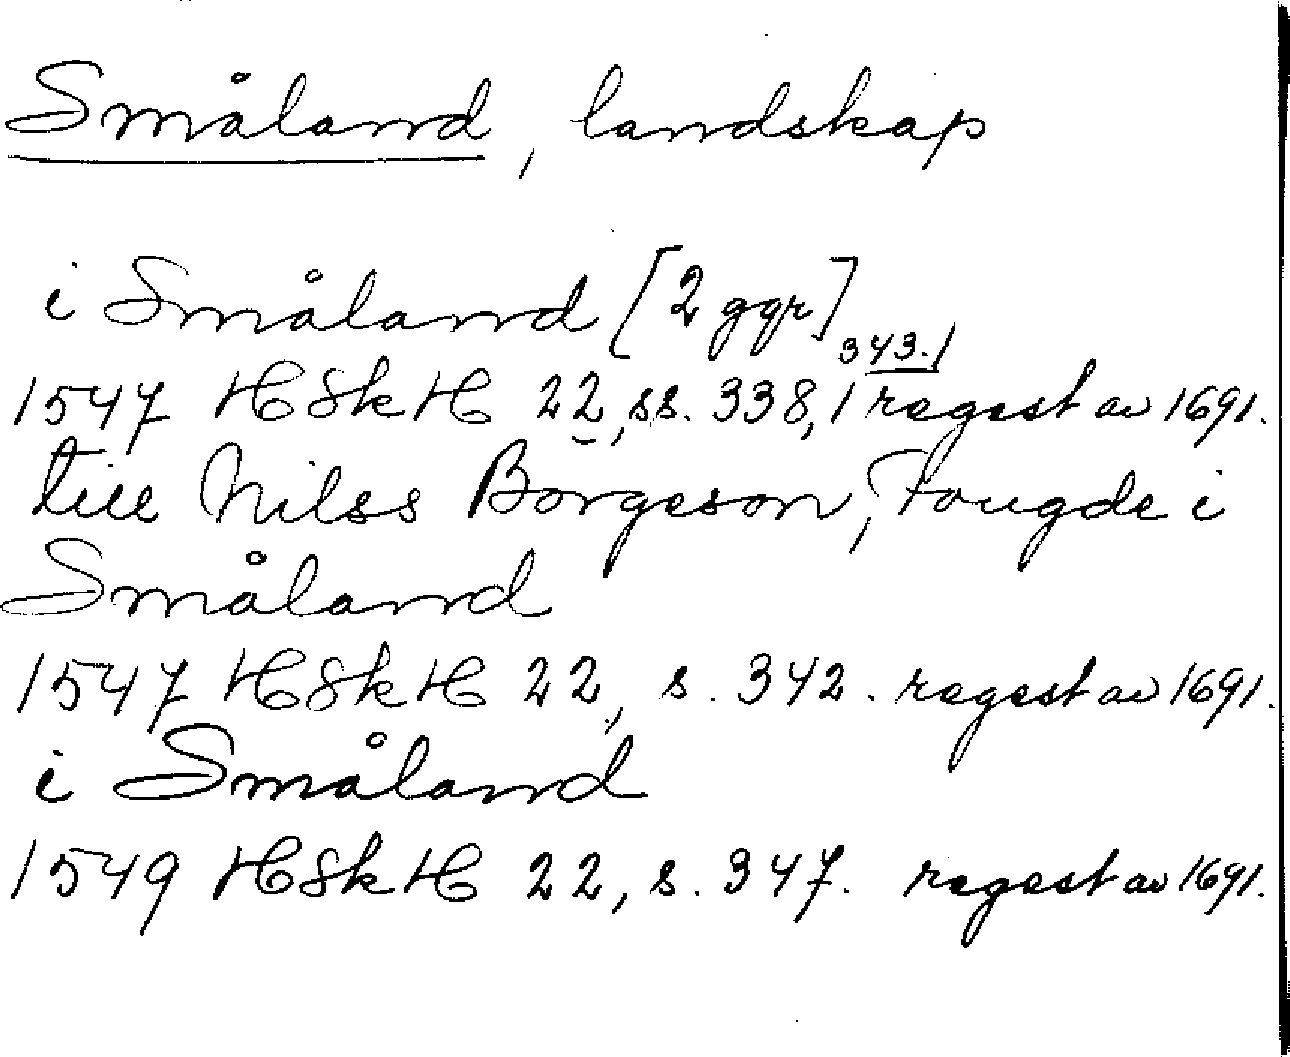 Småland, landskap
i Småland [2 ggr]
1547 HSkH 22, ss. 338, 343. regest av 1691.
till Nilss Börgeson, Fougde i
Småland
1547 HSkH 22, s. 342. regest av 1691.
i Småland
1549 HSkH 22, s. 347. regest av 1691.